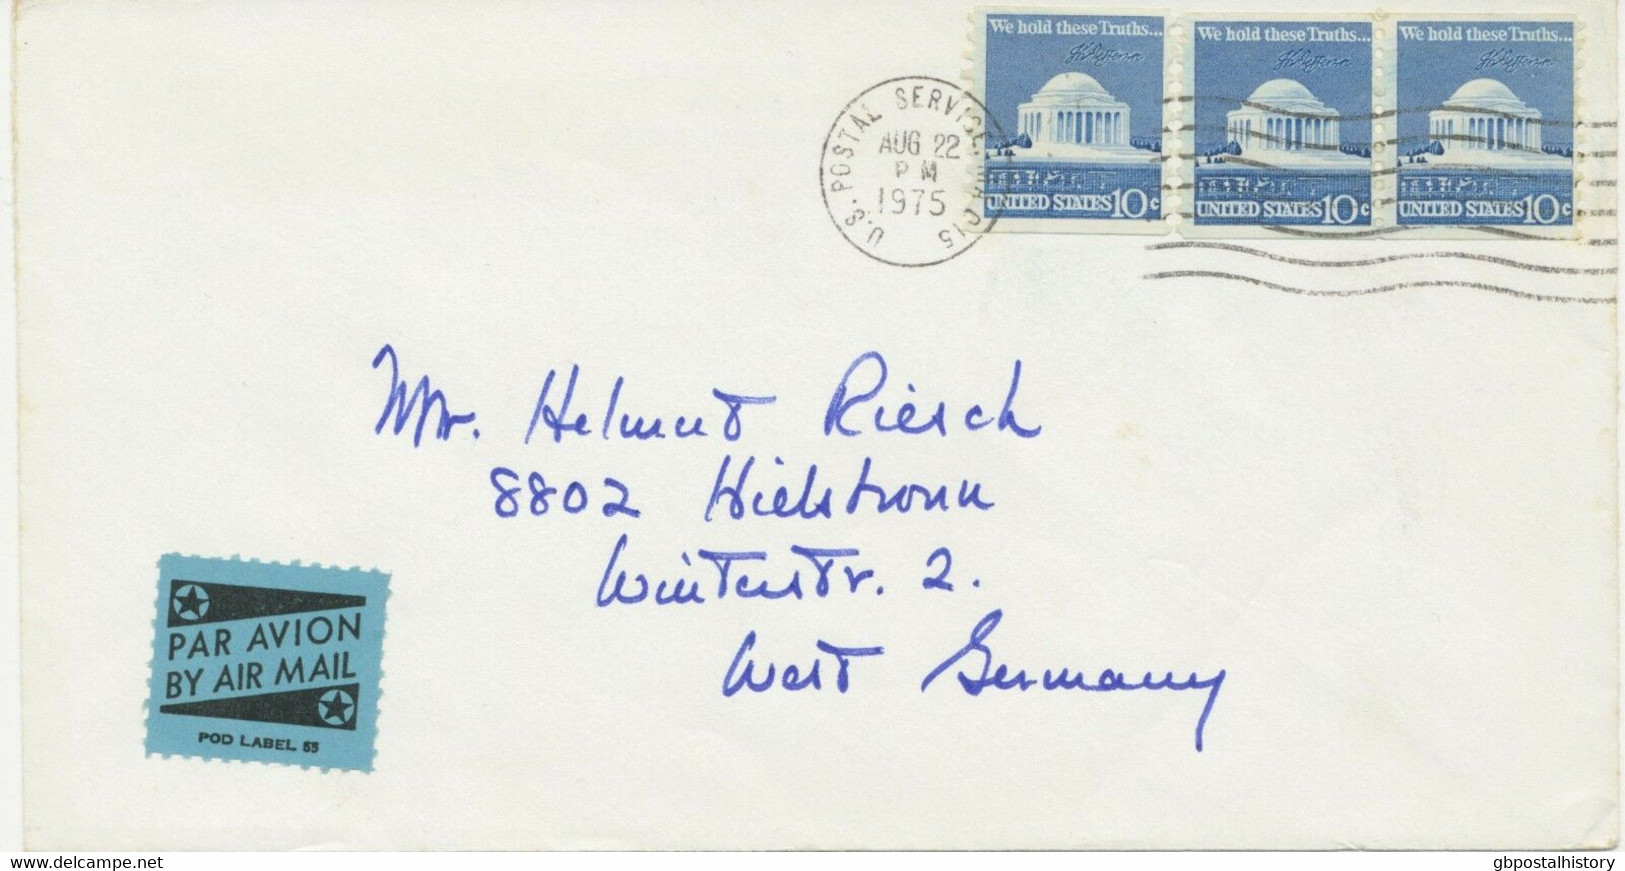 We hold these Truths...
UNITED STATES 10c
We hold these Truths...
UNITED STATES 10c
We hold these Truths...
UNITED STATES 10c
U.S. POSTAL SERVICE, 015
AUG 22
PM
1975
Mr. Helmut Riesch
8802 Hielsbronn
Winterstr. 2.
West Germany
PAR AVION
BY AIR MAIL
POD LABEL 55
www.delcampe.net
gbpostalhistory